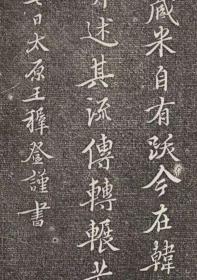 藏米自有跋今在韓
述其流傳轉輾
日太原王穉登謹書